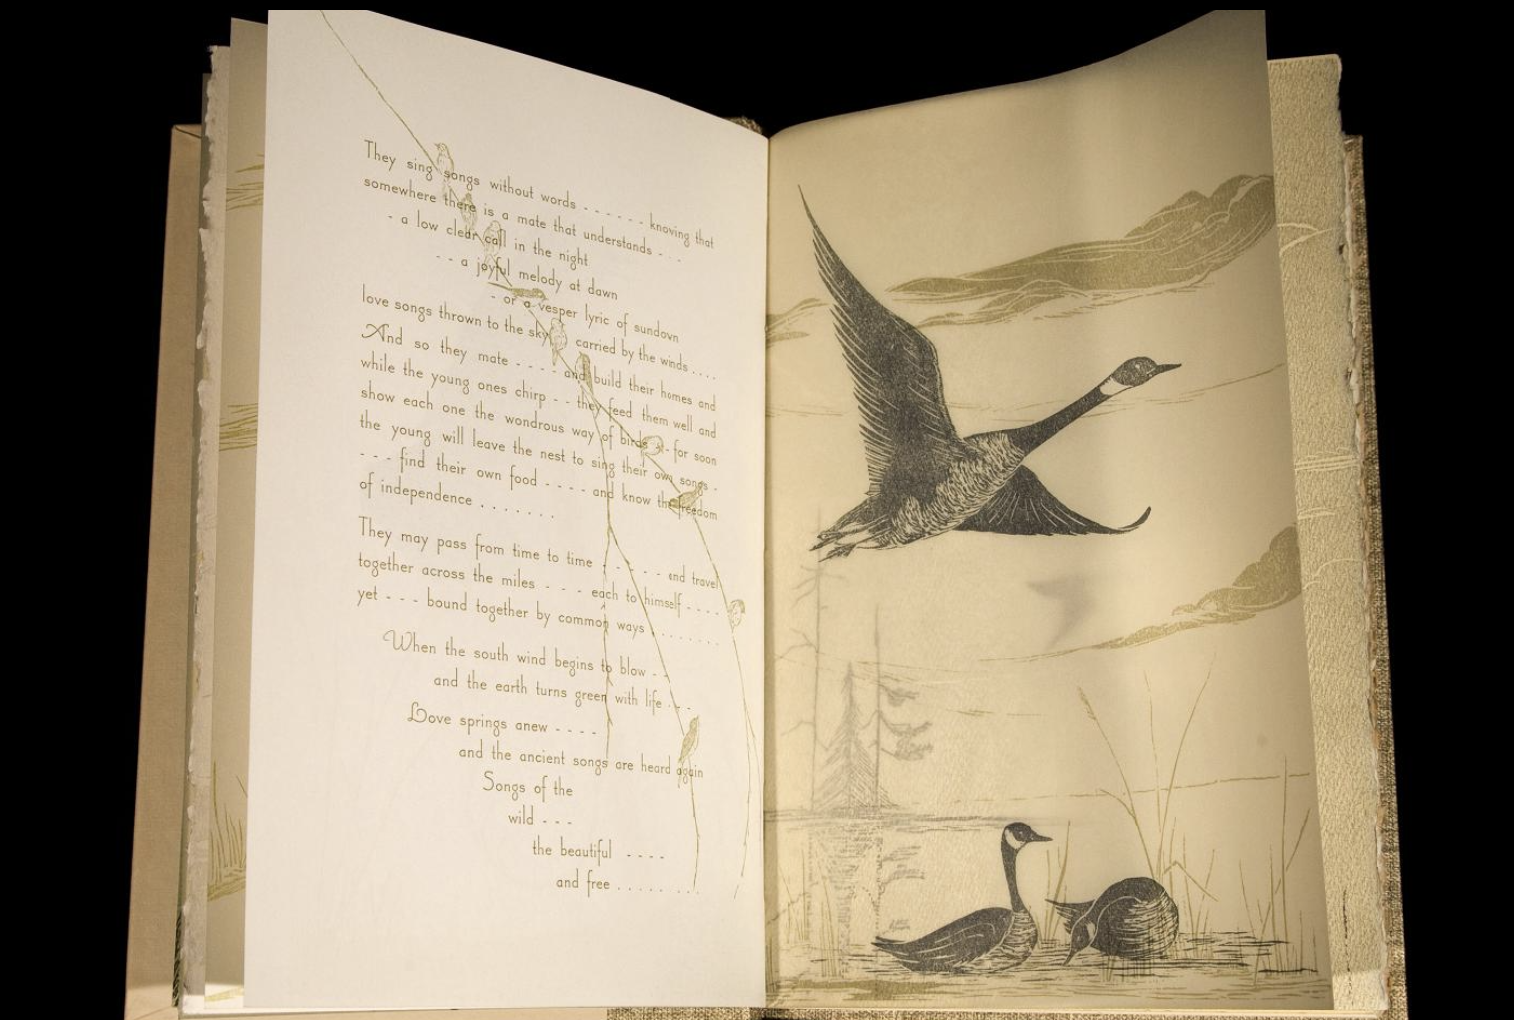 They sing songs without words - - - - - - knowing that
somewhere there is a mate that understands - - -
- a low clear call in the night
- - a joyful melody at dawn
- or a vesper lyric of sundown
love songs thrown to the sky carried by the winds . . . .
And so they mate - - - - and build their homes and
while the young ones chirp - - they feed them well and
show each one the wondrous way of birds - - for soon
the young will leave the nest to sing their own songs -
- - - find their own food - - - - and know the freedom
of independence . . . . . . .
They may pass from time to time - - - - - and travel
together across the miles - - - each to himself - - - -
yet - - - bound together by common ways . . . . . . .
When the south wind begins to blow - -
and the earth turns green with life - - -
Love springs anew - - - -
and the ancient songs are heard again
Songs of the
wild - - -
the beautiful - - - -
and free . . . . . . . .